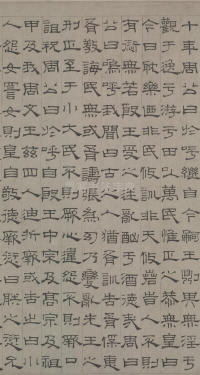 十年周公曰於呼繼自今嗣王則其無淫于
觀于逸于游于田以萬民惟正之共無皇曰
今日耽樂乃非民攸訓非天攸若時人丕則
有愆無若殷王受之迷亂酗于酒德哉周
公曰嗚呼我聞曰古之人猶胥訓告胥保惠
胥教誨民無或胥譸張為幻乃變亂先王之
刑正至于小大民否則厥心違怨否則厥口
詛祝周公曰於呼自殷王中宗及高宗及祖
甲及我周文王茲四人迪哲厥或告之曰小
人怨女詈女則皇自敬德厥愆曰朕之愆允